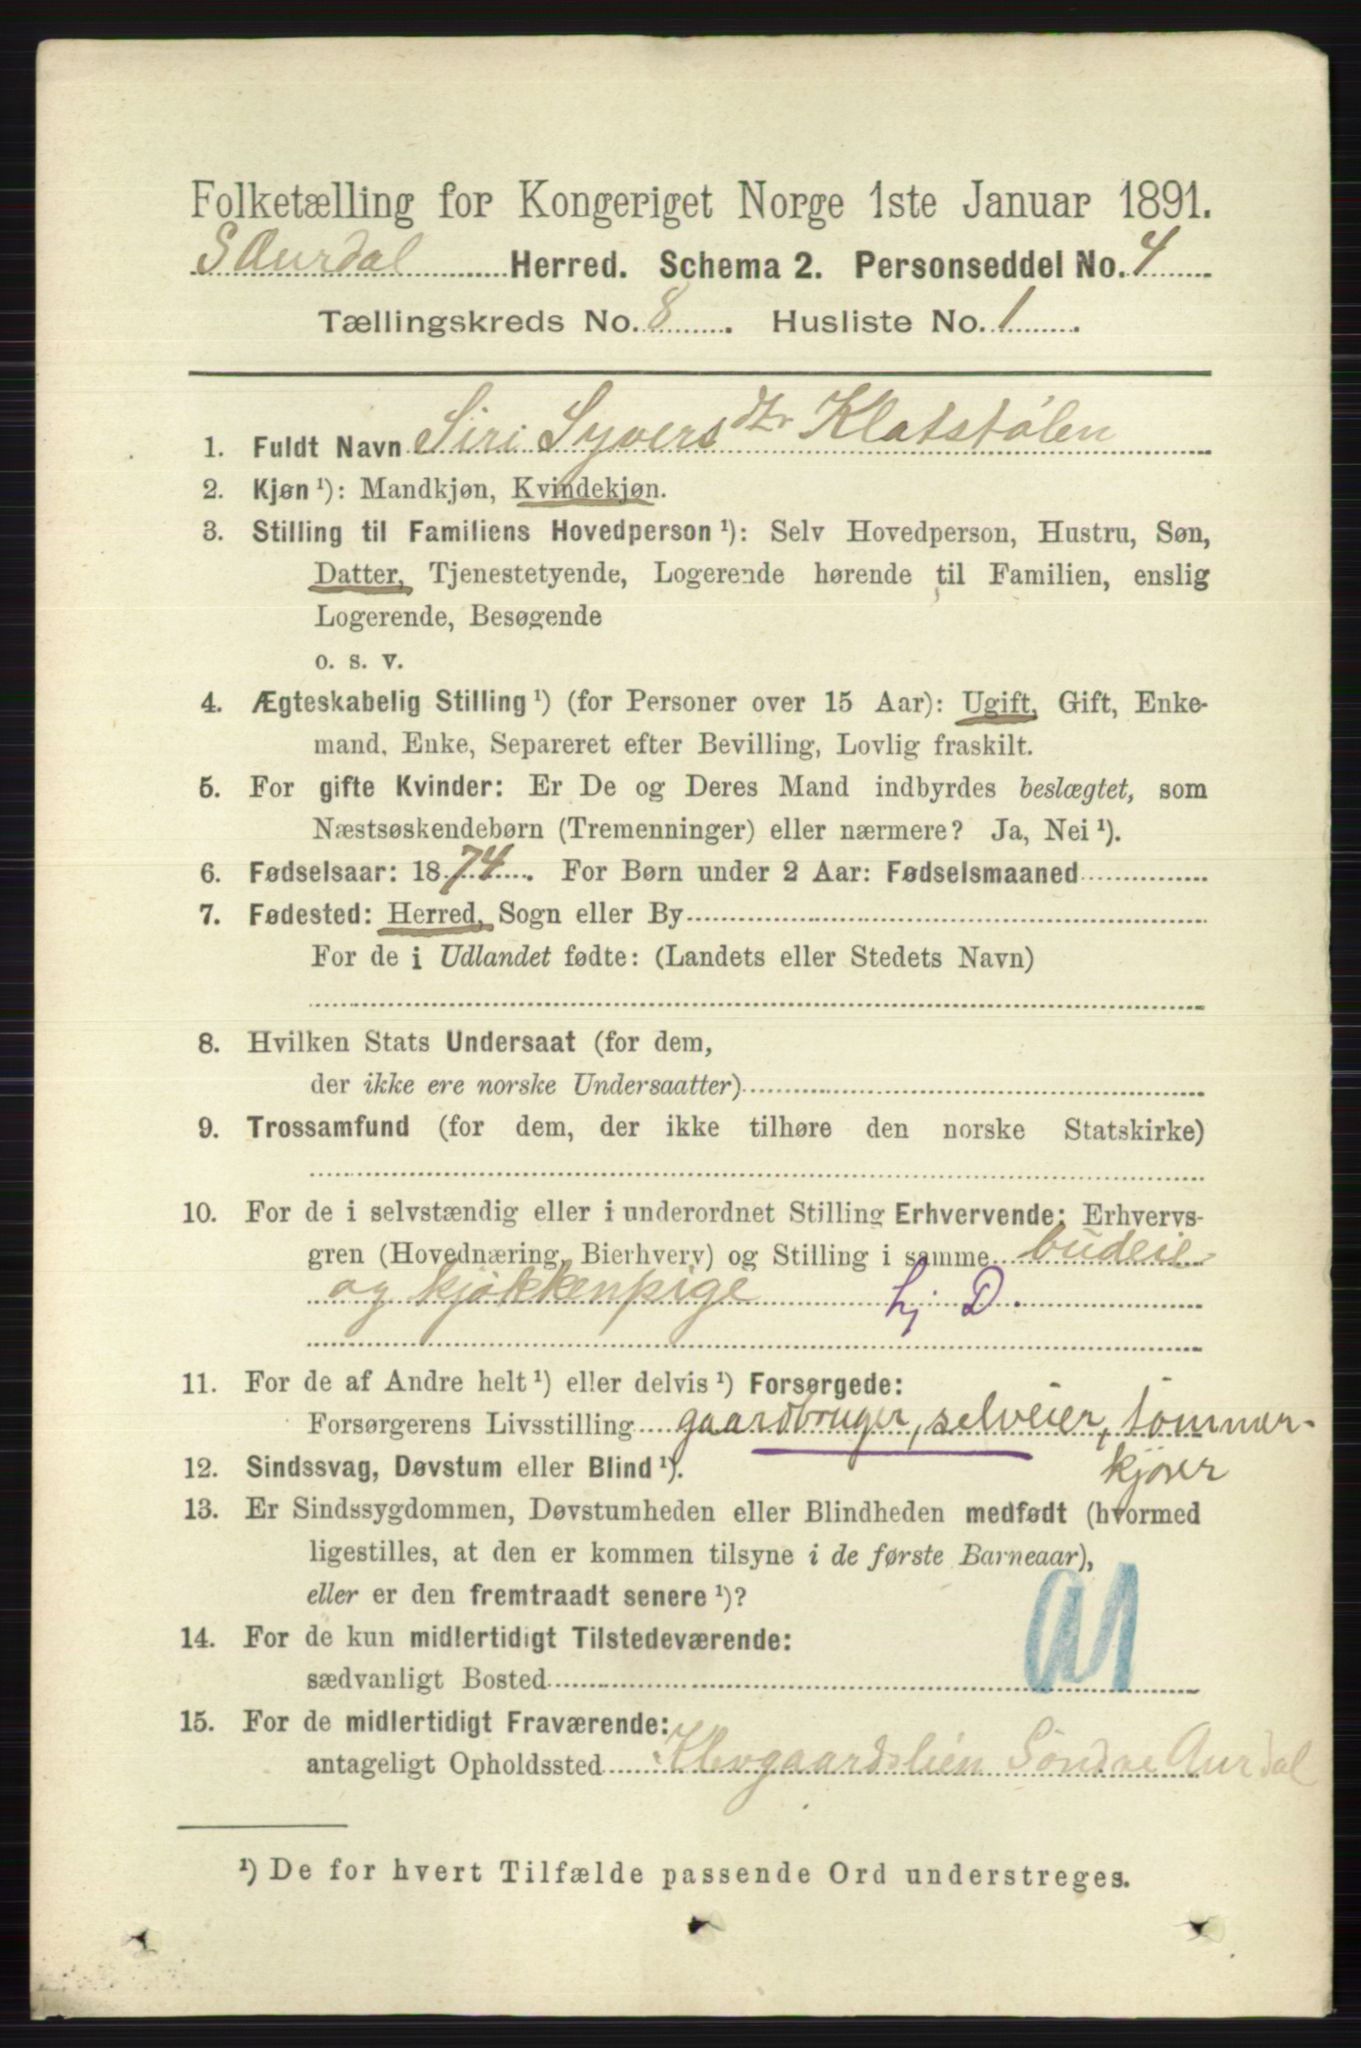 Folketælling for Kongeriget Norge 1ste Januar 1891.
S Aurdal Herred. Schema 2. Personseddel No. 4
Tællingskreds No. 8. Husliste No. 1.
1. Fuldt Navn Siri Syversdtr Klatstølen
2. Kjøn ¹): Mandkjøn, Kvindekjøn.
3. Stilling til Familiens Hovedperson ¹): Selv Hovedperson, Hustru, Søn,
Datter, Tjenestetyende, Logerende hørende til Familien, enslig
Logerende, Besøgende
o. s. v.
4. Ægteskabelig Stilling ¹) (for Personer over 15 Aar): Ugift, Gift, Enke-
mand, Enke, Separeret efter Bevilling, Lovlig fraskilt.
5. For gifte Kvinder: Er De og Deres Mand indbyrdes beslægtet, som
Næstsøskendebørn (Tremenninger) eller nærmere? Ja, Nei ¹).
6. Fødselsaar: 1874. For Børn under 2 Aar: Fødselsmaaned
7. Fødested: Herred, Sogn eller By
For de i Udlandet fødte: (Landets eller Stedets Navn)
8. Hvilken Stats Undersaat (for dem,
der ikke ere norske Undersaatter)
9. Trossamfund (for dem, der ikke tilhøre den norske Statskirke)
10. For de i selvstændig eller i underordnet Stilling Erhvervende: Erhvervs-
gren (Hovednæring, Bierhverv) og Stilling i samme budeie
og kjøkkenpige hj D.
11. For de af Andre helt ¹) eller delvis ¹) Forsørgede:
Forsørgerens Livsstilling gaardbruger, selveier, tømmer-
kjører
12. Sindssvag, Døvstum eller Blind ¹).
13. Er Sindssygdommen, Døvstumheden eller Blindheden medfødt (hvormed
ligestilles, at den er kommen tilsyne i de første Barneaar),
eller er den fremtraadt senere ¹)?
14. For de kun midlertidigt Tilstedeværende:
sædvanligt Bosted
15. For de midlertidigt Fraværende:
antageligt Opholdssted Klevgaardslien Søndre Aurdal
¹) De for hvert Tilfælde passende Ord understreges.